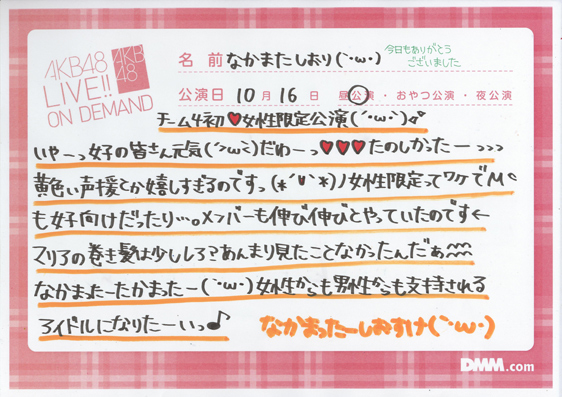 AKB48
LIVE!!
ON DEMAND
AKB
48
名 前 なかまたしおり(`･ω･)
今日もありがとう
ございました
公演日 10 月 16 日 昼公演・おやつ公演・夜公演
チーム4初♥女性限定公演(´･ω･`)
いやーっ女子の皆さん元気(>ω<)だわーっ♥♥♥たのしかったーっっっ
黄色い声援とか嬉しすぎるのですっ(*´∀`*)ノ女性限定ってワケでMC
も女子向けだったり…。メンバーも伸び伸びとやっていたのです←
マリアの巻き髪は少ししろ?あんまり見たことなかったんだぁ
なかまったーたかまったー(`･ω･)女性からも男性からも支持される
アイドルになりたーいっ♪ なかまったーしおすけ(`･ω･)
DMM.com